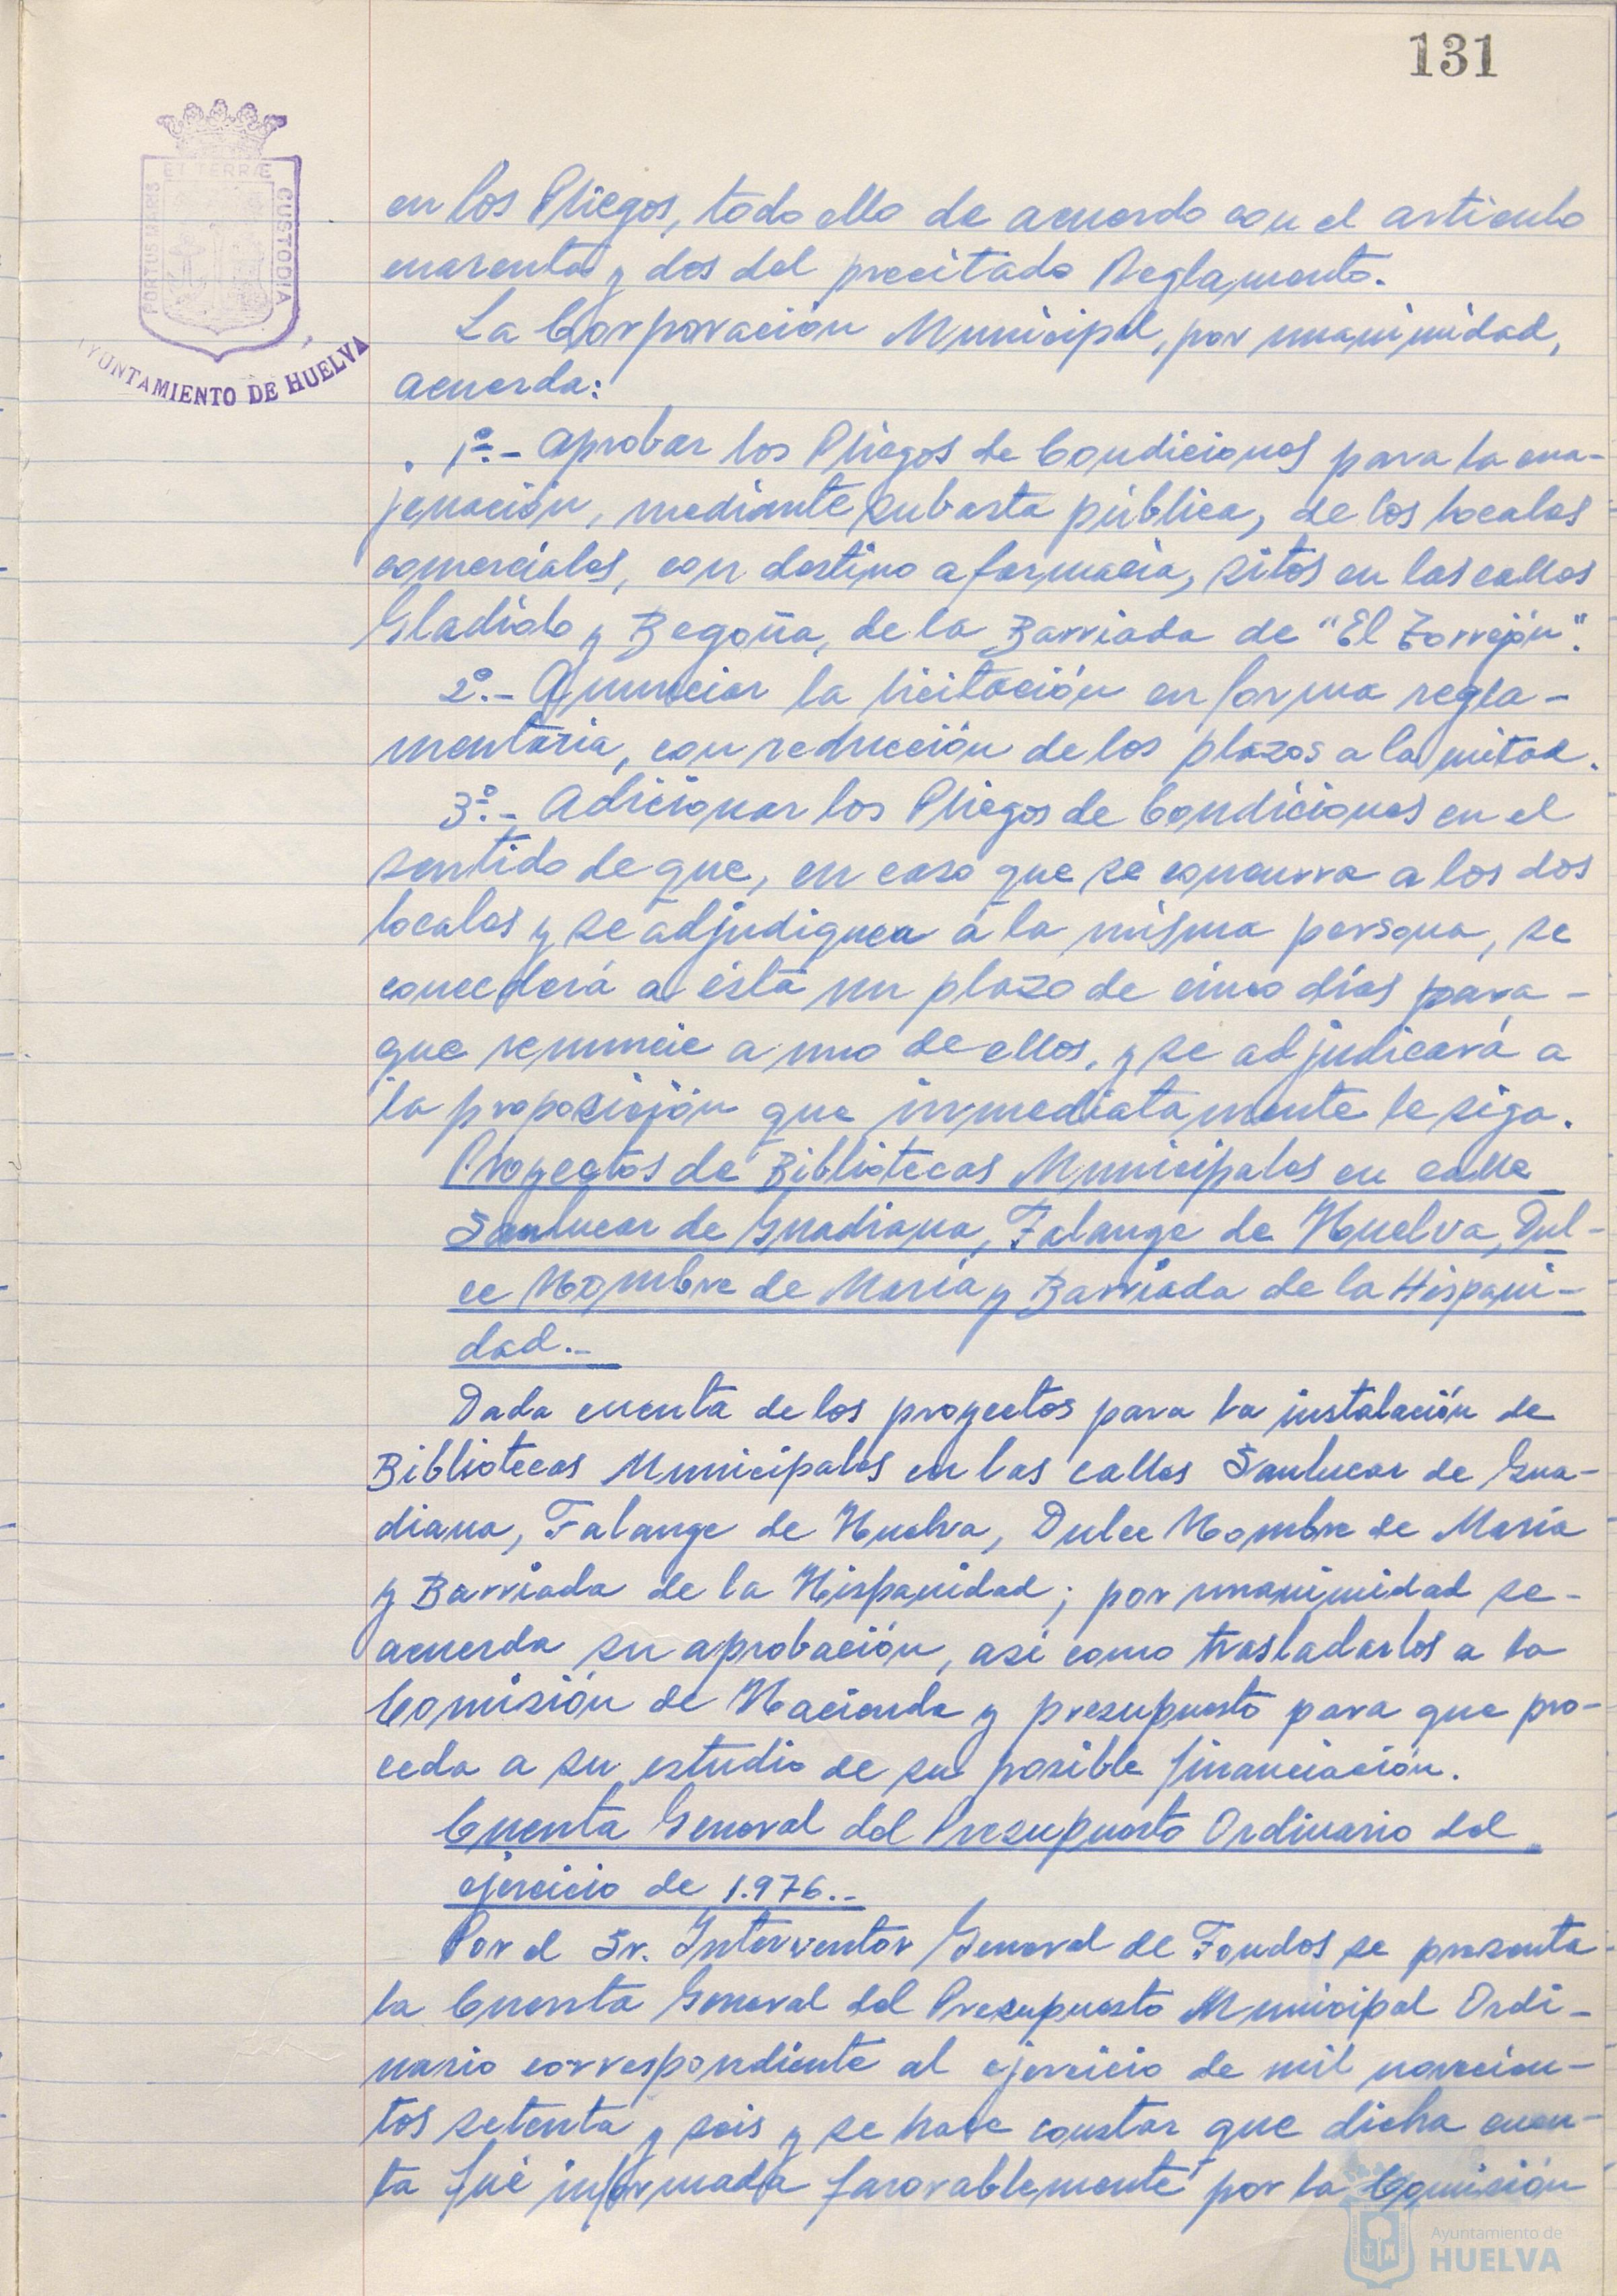 131
ET TERRÆ
PORTUS MARIS
CUSTODIA
AYUNTAMIENTO DE HUELVA
en los Pliegos, todo ello de acuerdo con el articulo
cuarenta y dos del precitado Reglamento.
La Corporación Municipal, por unanimidad,
acuerda:
1º.- Aprobar los Pliegos de Condiciones para la ena-
jenación, mediante subasta pública, de los locales
comerciales, con destino a farmacia, sitos en las calles
Gladiolo y Begoña, de la Barriada de "El Torrejón".
2º.- Anunciar la licitación en forma regla-
mentaria, con reducción de los plazos a la mitad.
3º.- Adicionar los Pliegos de Condiciones en el
sentido de que, en caso que se concurra a los dos
locales y se adjudiquen a la misma persona, se
concederá a ésta un plazo de cinco días para -
que renuncie a uno de ellos, y se adjudicará a
la proposición que inmediatamente le siga.
Proyectos de Bibliotecas Municipales en calle
Sanlucar de Guadiana, Falange de Huelva, Dul-
ce Nombre de María y Barriada de la Hispani-
dad.-
Dada cuenta de los proyectos para la instalación de
Bibliotecas Municipales en las calles Sanlucar de Gua-
diana, Falange de Huelva, Dulce Nombre de María
y Barriada de la Hispanidad; por unanimidad se-
acuerda su aprobación, asi como trasladarlos a la
Comisión de Hacienda y presupuesto para que pro-
ceda a su estudio de su posible financiación.
Cuenta General del Presupuesto Ordinario del
ejercicio de 1.976.-
Por el Sr. Interventor General de Fondos se presenta
la Cuenta General del Presupuesto Municipal Ordi-
nario correspondiente al ejercicio de mil novecien-
tos setenta y seis y se hace constar que dicha cuen-
ta fué informada favorablemente por la Comisión
Ayuntamiento de
HUELVA